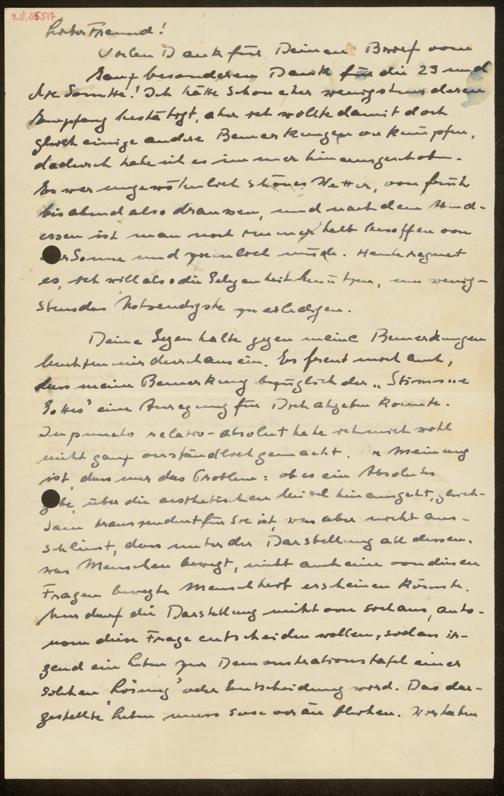 Z.N. 115507
Lieber Freund!
Vielen Dank für Deinen Brief vom
Ganz besonderen Dank für die 23 und
Ich hätte Schon eher wenigstens deren
Empfang bestätigt, aber ich wollte damit doch
gleich einige andere Bemerkungen anknüpfen,
dadurch habe ich es immer hinausgeschoben.
Es war ungewöhnlich schönes Wetter, von früh
bis abend also draussen, und nach dem Abend-
essen ist man noch immer halb besoffen von
der Sonne und ziemlich müde. Heute regnet
es, ich will also die Gelegenheit benützen, um wenig-
stens das Notwendigste zu erledigen.
Deine Gegen halte gegen meine Bemerkungen
leuchten mir durchaus ein. Es freut mich auch,
dass meine Bemerkung bezüglich der „Stimme
Gottes" eine Anregung für Dich abgeben konnte.
In puncto relativ-absolut habe ich mich wohl
nicht ganz verständlich gemacht. Meinung
ist, dass nur das Problem: ob es ein Absolutes
gebe, über die aesthetischen Mittel hinausgeht, gleich-
sam transzendent für sie ist, was aber nicht aus-
schliesst, dass unter der Darstellung all dessen,
was Menschen bewegt, nicht auch eine von diesen
Fragen bewegte Menschheit erscheinen könnte.
Nur darf die Darstellung nicht von sich aus, auto-
nom diese Frage entscheiden wollen, sodass ir-
gend ein Leben zur Demonstrationstafel einer
solchen Lösung oder Entscheidung wird. Das dar-
gestellte Leben muss bleiben.